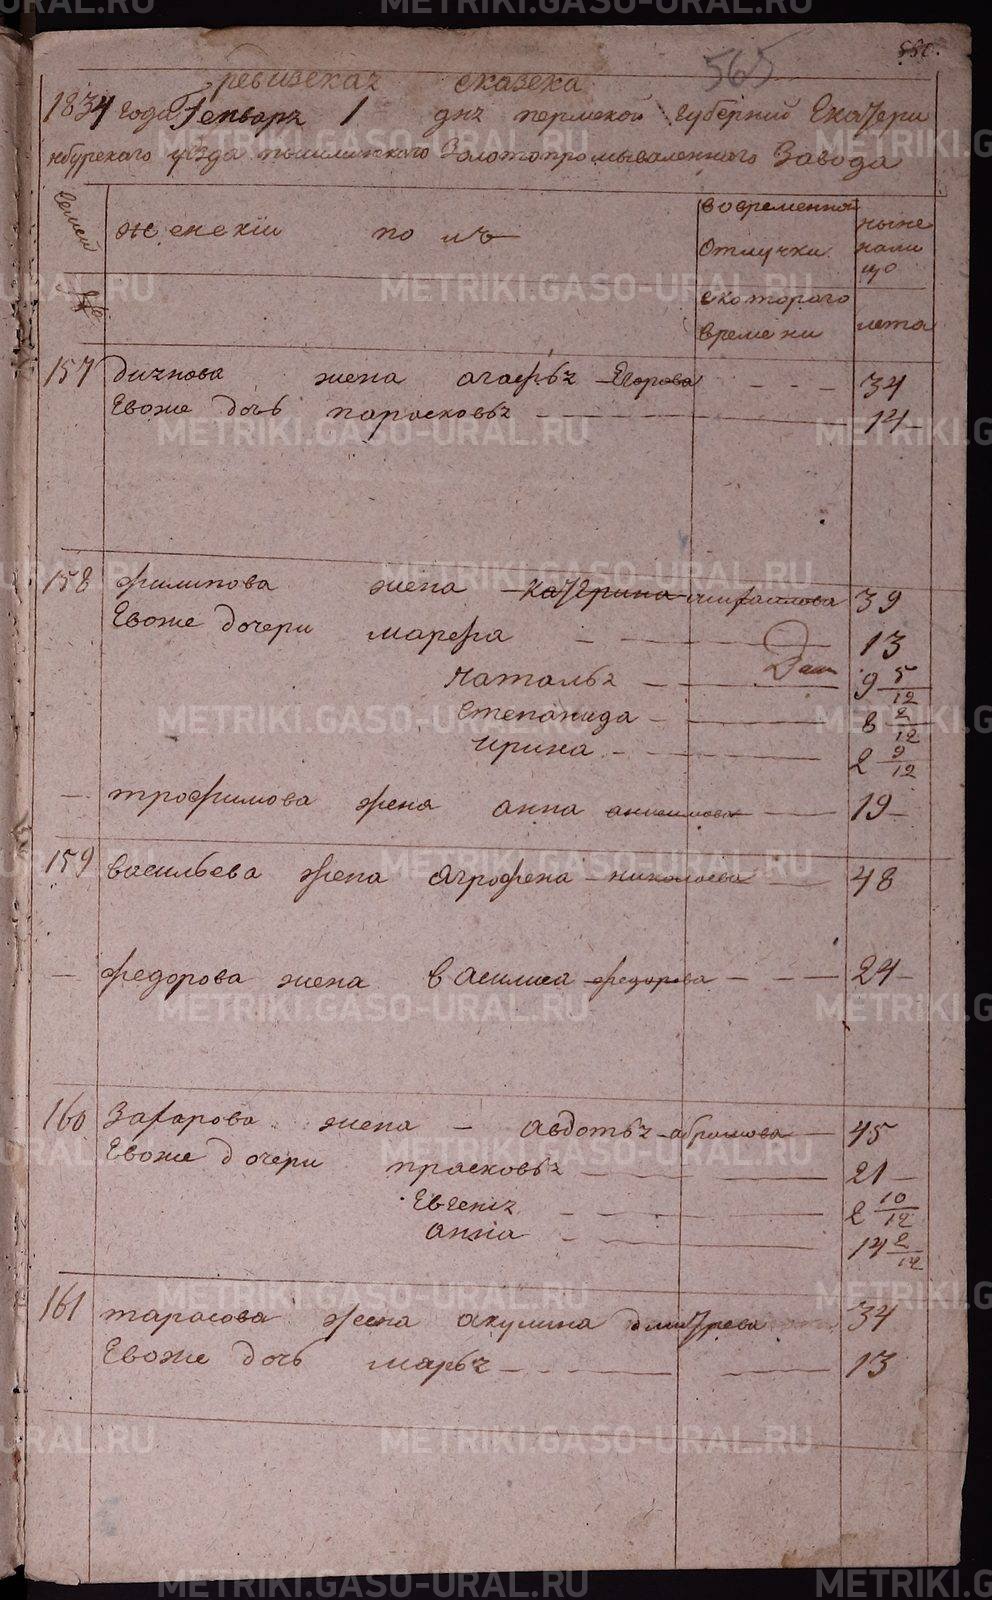 565
580.
Ревизская сказска
1834 года Генваря 1 дня пермской губернии Екатери
нбурскаго уезда пышминского Золотопромываленного Завода
Семей
женскіи полъ
вовременно
отлучки
скотораго
времени
ныне
нали
цо
лета
157 дичкова жена агафья Егорова - - - 34
Евоже дочь парасковья 14
158 филипова жена катерина 39
Евоже дочери марфа 13
Наталья 9 5/12
Степанида 8 2/12
Ирина 2 9/12
— трофимова жена анна анисимова 19
159 васильева жена Агрофена николаева 48
— федорова жена василиса федорова 24
160 Захарова жена — авдотья абрамова 45
Евоже дочери прасковья 21
Евгения 2 10/12
анна 14 2/12
161 тарасова жена акулина дмитрева 34
Евоже дочь марья 13
METRIKI.GASO-URAL.RU